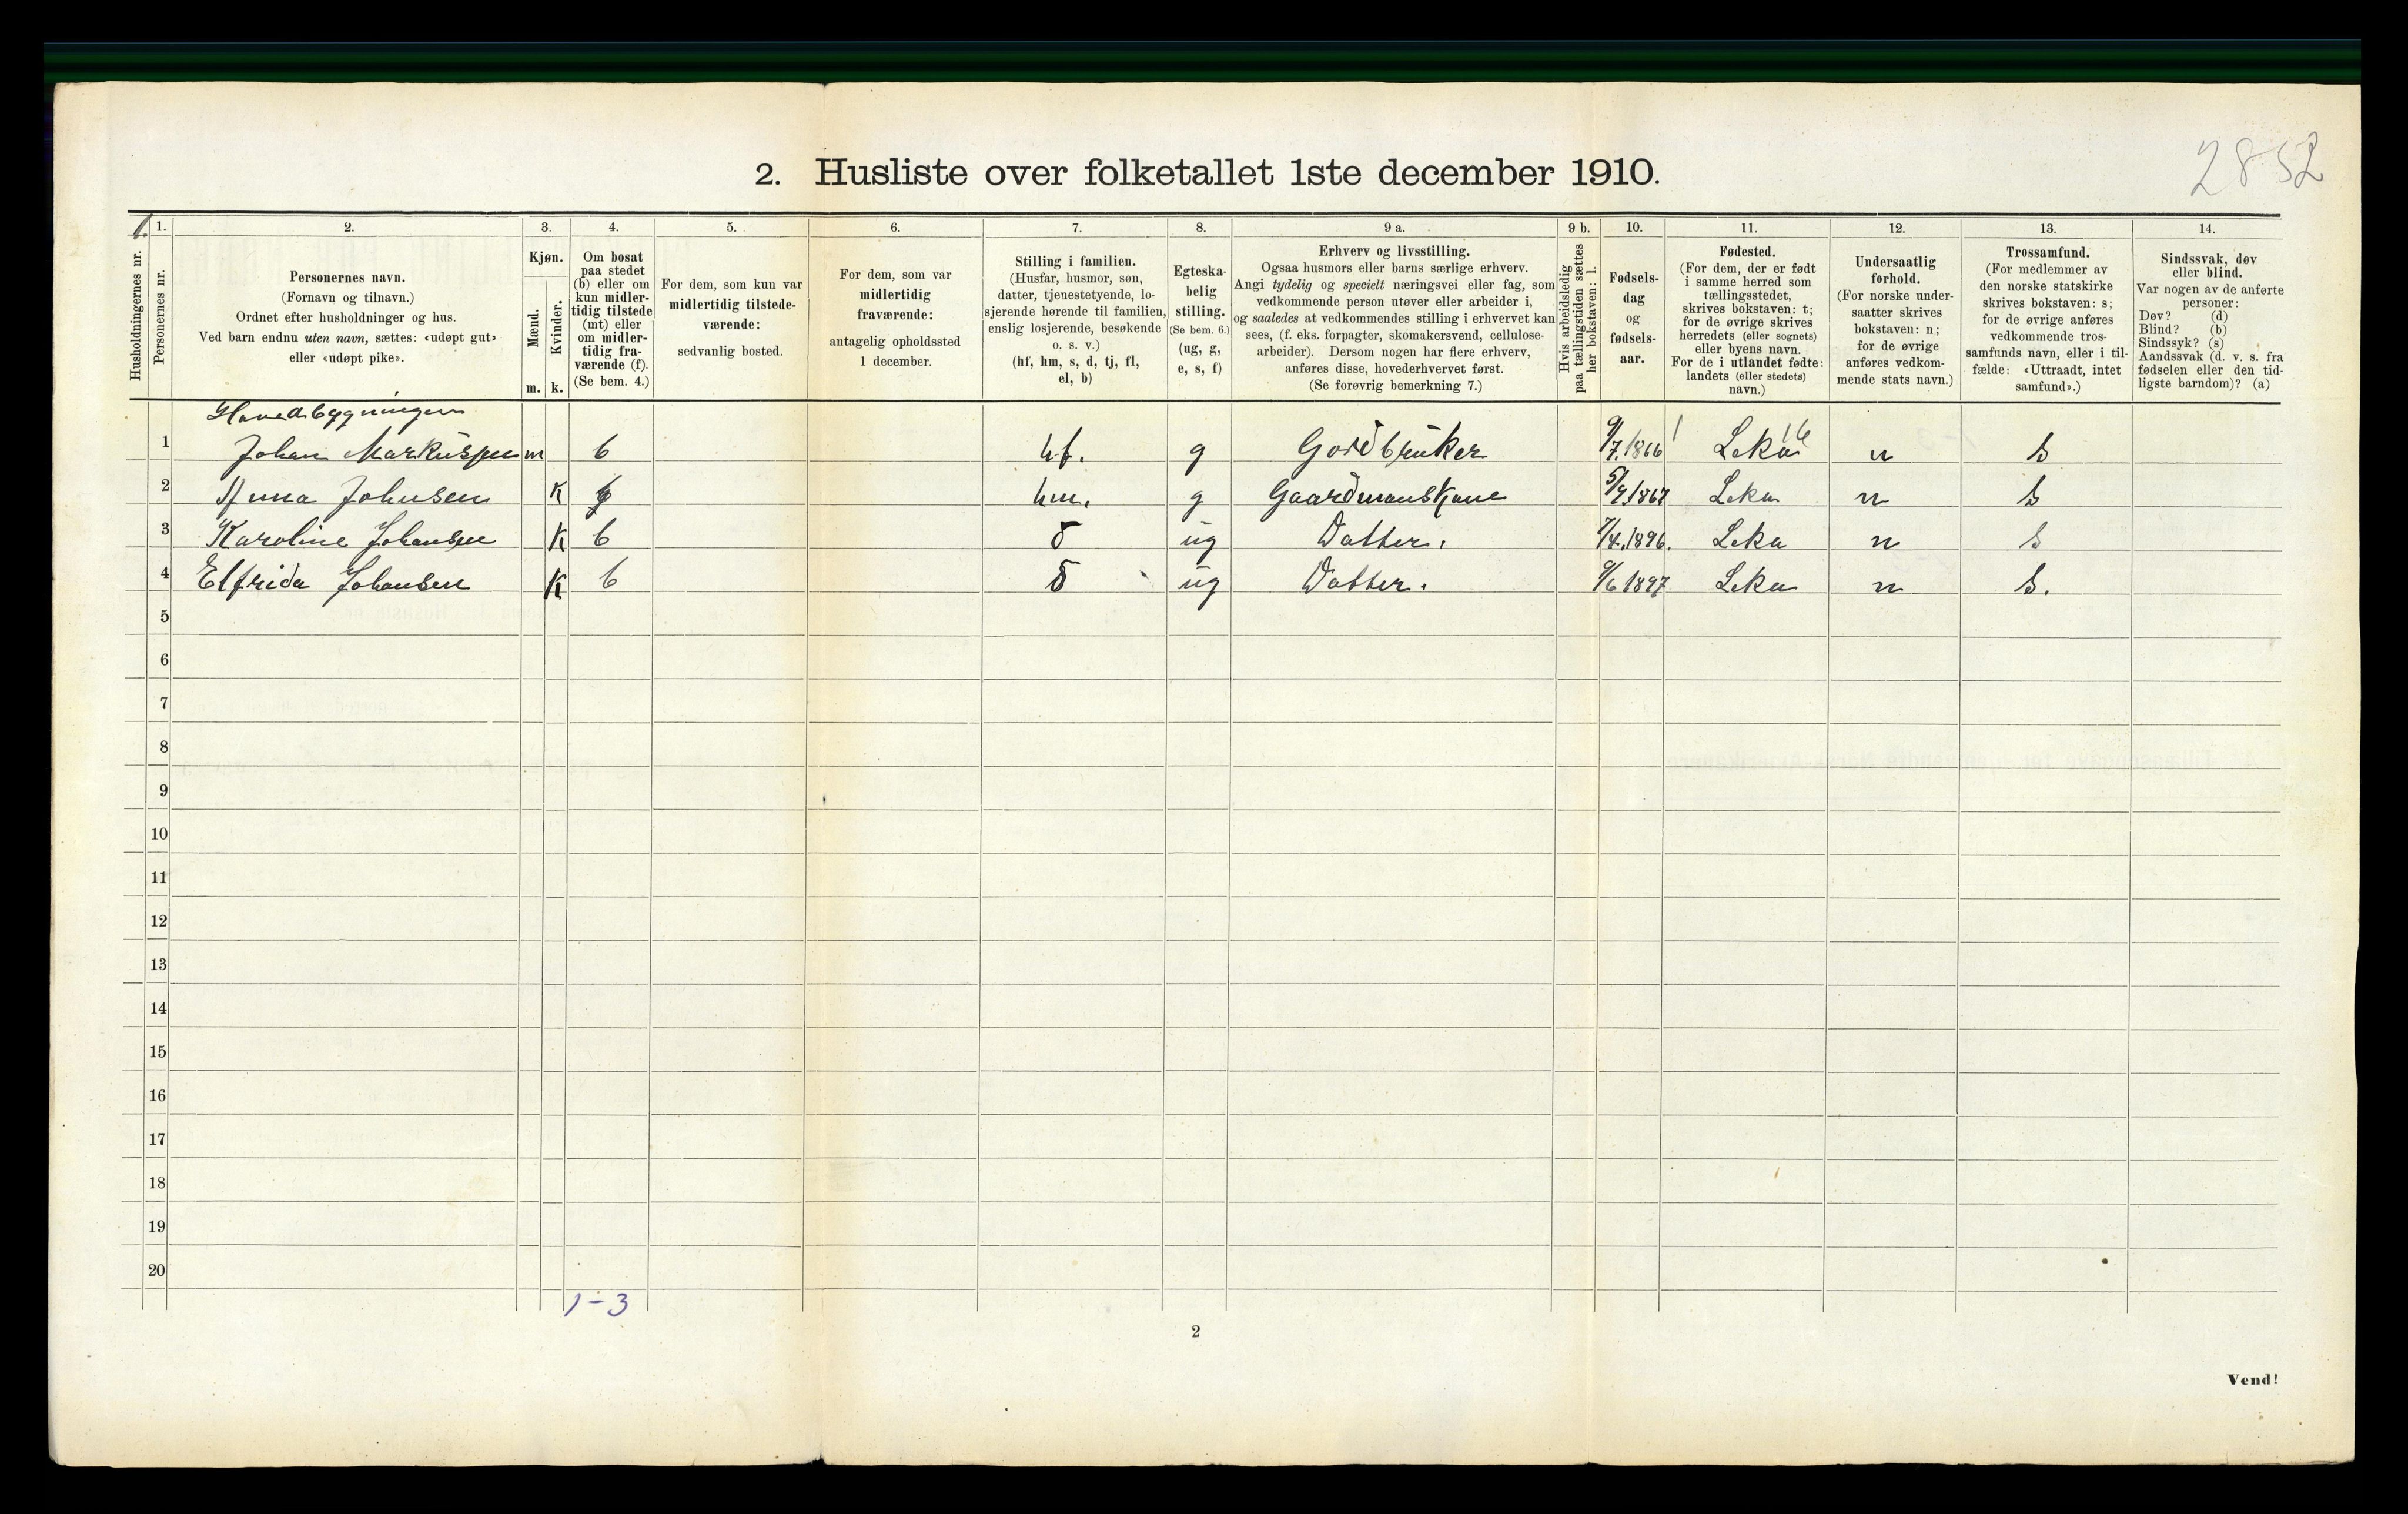 2852
2. Husliste over folketallet 1ste december 1910.
1. 2. 3. 4. 5. 6. 7. 8. 9 a. 9 b. 10. 11. 12. 13. 14.
Husholdningernes nr.
Personernes nr.
Personernes navn.
(Fornavn og tilnavn.)
Ordnet efter husholdninger og hus.
Ved barn endnu uten navn, sættes: «udøpt gut»
eller «udøpt pike».
Kjøn.
Mænd.
Kvinder.
m. k.
Om bosat
paa stedet
(b) eller om
kun midler-
tidig tilstede
(mt) eller
om midler-
tidig fra-
værende (f).
(Se bem. 4.)
For dem, som kun var
midlertidig tilstede-
værende:
sedvanlig bosted.
For dem, som var
midlertidig
fraværende:
antagelig opholdssted
1 december.
Stilling i familien.
(Husfar, husmor, søn,
datter, tjenestetyende, lo-
sjerende hørende til familien,
enslig losjerende, besøkende
o. s. v.)
(hf, hm, s, d, tj, fl,
el, b)
Egteska-
belig
stilling.
(Se bem. 6.)
(ug, g,
e, s, f)
Erhverv og livsstilling.
Ogsaa husmors eller barns særlige erhverv.
Angi tydelig og specielt næringsvei eller fag, som
vedkommende person utøver eller arbeider i,
og saaledes at vedkommendes stilling i erhvervet kan
sees, (f. eks. forpagter, skomakersvend, cellulose-
arbeider). Dersom nogen har flere erhverv,
anføres disse, hovederhvervet først.
(Se forøvrig bemerkning 7.)
Hvis arbeidsledig
paa tællingstiden sættes
her bokstaven: l.
Fødsels-
dag
og
fødsels-
aar.
Fødested.
(For dem, der er født
i samme herred som
tællingsstedet,
skrives bokstaven: t;
for de øvrige skrives
herredets (eller sognets)
eller byens navn.
For de i utlandet fødte:
landets (eller stedets)
navn.)
Undersaatlig
forhold.
(For norske under-
saatter skrives
bokstaven: n;
for de øvrige
anføres vedkom-
mende stats navn.)
Trossamfund.
(For medlemmer av
den norske statskirke
skrives bokstaven: s;
for de øvrige anføres
vedkommende tros-
samfunds navn, eller i til-
fælde: «Uttraadt, intet
samfund».)
Sindssvak, døv
eller blind.
Var nogen av de anførte
personer:
Døv? (d)
Blind? (b)
Sindssyk? (s)
Aandssvak (d. v. s. fra
fødselen eller den tid-
ligste barndom)? (a)
Hovedbygningen
1 Johan Markussen m b hf. g Gordbruker 9/7.1866 Leka 16 n s
2 Anna Johnsen K b hm. g Gaardmanskone 5/9.1867 Leka n s
3 Karoline Johansen K b d ug Datter. 7/4.1896. Leka n s
4 Elfrida Johansen K b d ug Datter. 9/6 1897 Leka n s.
5
6
7
8
9
10
11
12
13
14
15
16
17
18
19
20
1-3
2
Vend!